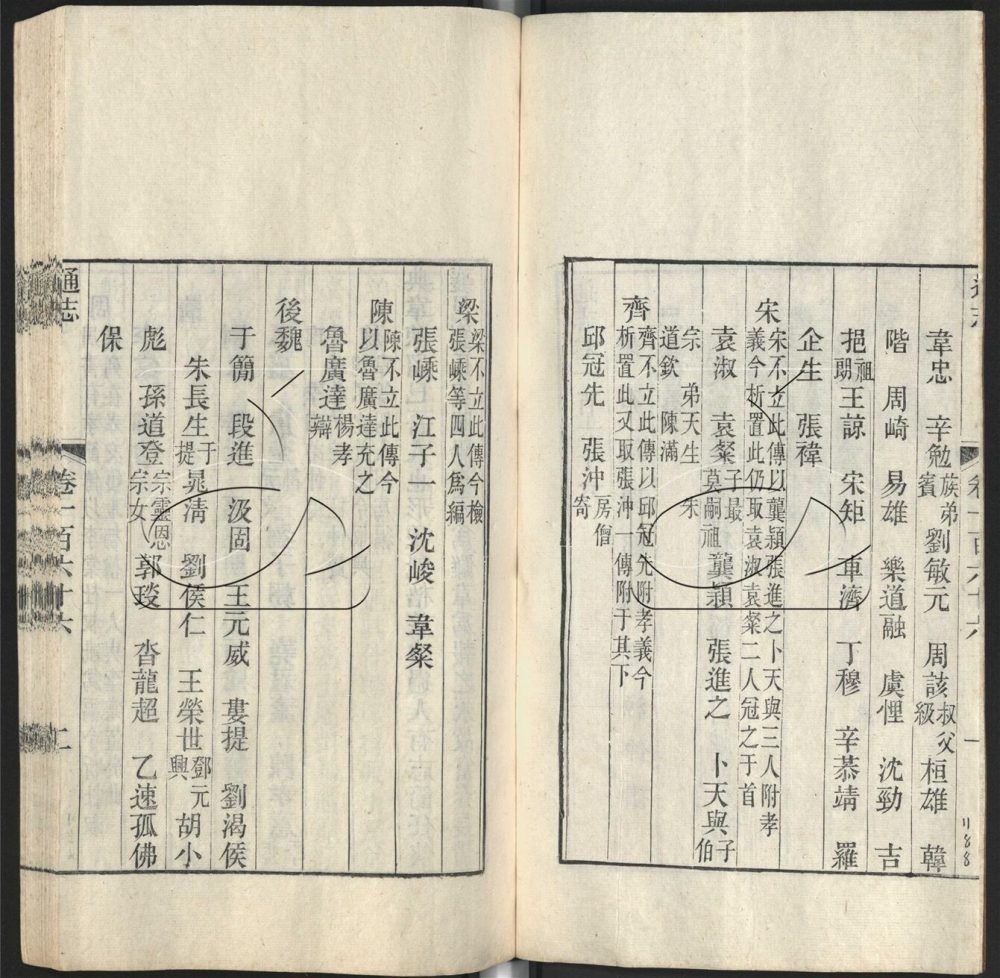 韋忠 辛勉族弟賓 劉敏元 周該叔父級 桓雄 韓
階 周崎 易雄 樂道融 虞悝 沈勁 吉
挹祖朗 王諒 宋矩 車濟 丁穆 辛恭靖 羅
企生 張禕
宋宋不立此傳以龔穎張進之卜天與三人附孝
義今析置此仍取袁淑袁粲二人冠之于首
袁淑 袁粲子最 莫嗣祖 龔穎 張進之 卜天與子伯
宗 弟天生
道欽 陳滿
齊齊不立此傳以邱冠先附孝義今
析置此又取張沖一傳附于其下
邱冠先 張沖房僧寄
一
1188
梁梁不立此傳今檢
張嵊等四人爲編
張嵊 江子一 沈峻 韋粲
陳陳不立此傳今
以魯廣達充之
魯廣達楊孝辯
後魏
于簡 段進 汲固 王元威 婁提 劉渴侯
朱長生于提 晁清 劉侯仁 王榮世鄧元興 胡小
彪 孫道登宗靈恩宗女 郭琰 沓龍超 乙速孤佛
保
通志
卷一百六十六
二